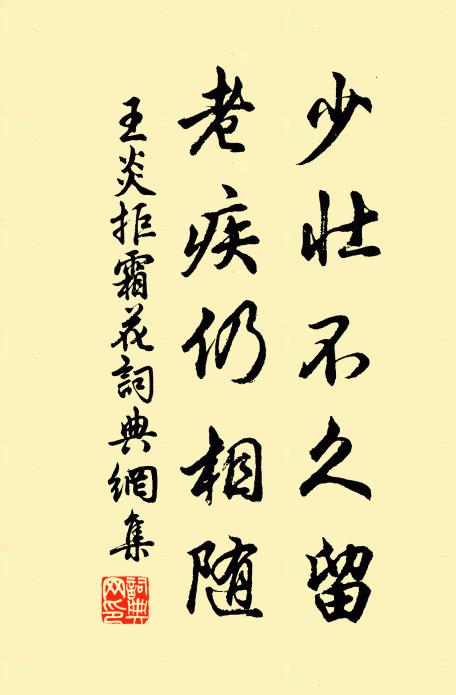 少壮不久留
老疾仍相随
王炎拒霜花詞典網集
詞典網印